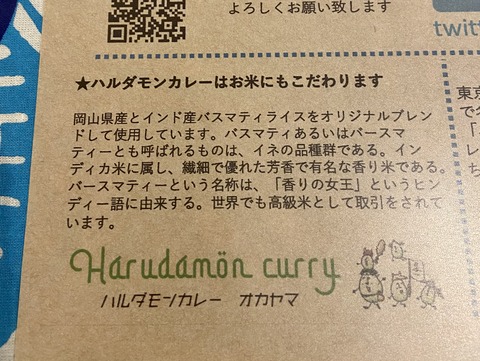 よろしくお願い致します
twitt
★ハルダモンカレーはお米にもこだわります
岡山県産とインド産バスマティライスをオリジナルブレン
ドして使用しています。バスマティあるいはバースマ
ティーとも呼ばれるものは、イネの品種群である。イン
ディカ米に属し、繊細で優れた芳香で有名な香り米である。
バースマティーという名称は、「香りの女王」というヒン
ディー語に由来する。世界でも高級米として取引をされて
います。
Harudamön curry
ハルダモンカレー オカヤマ
東京
で名
「
レ
ち